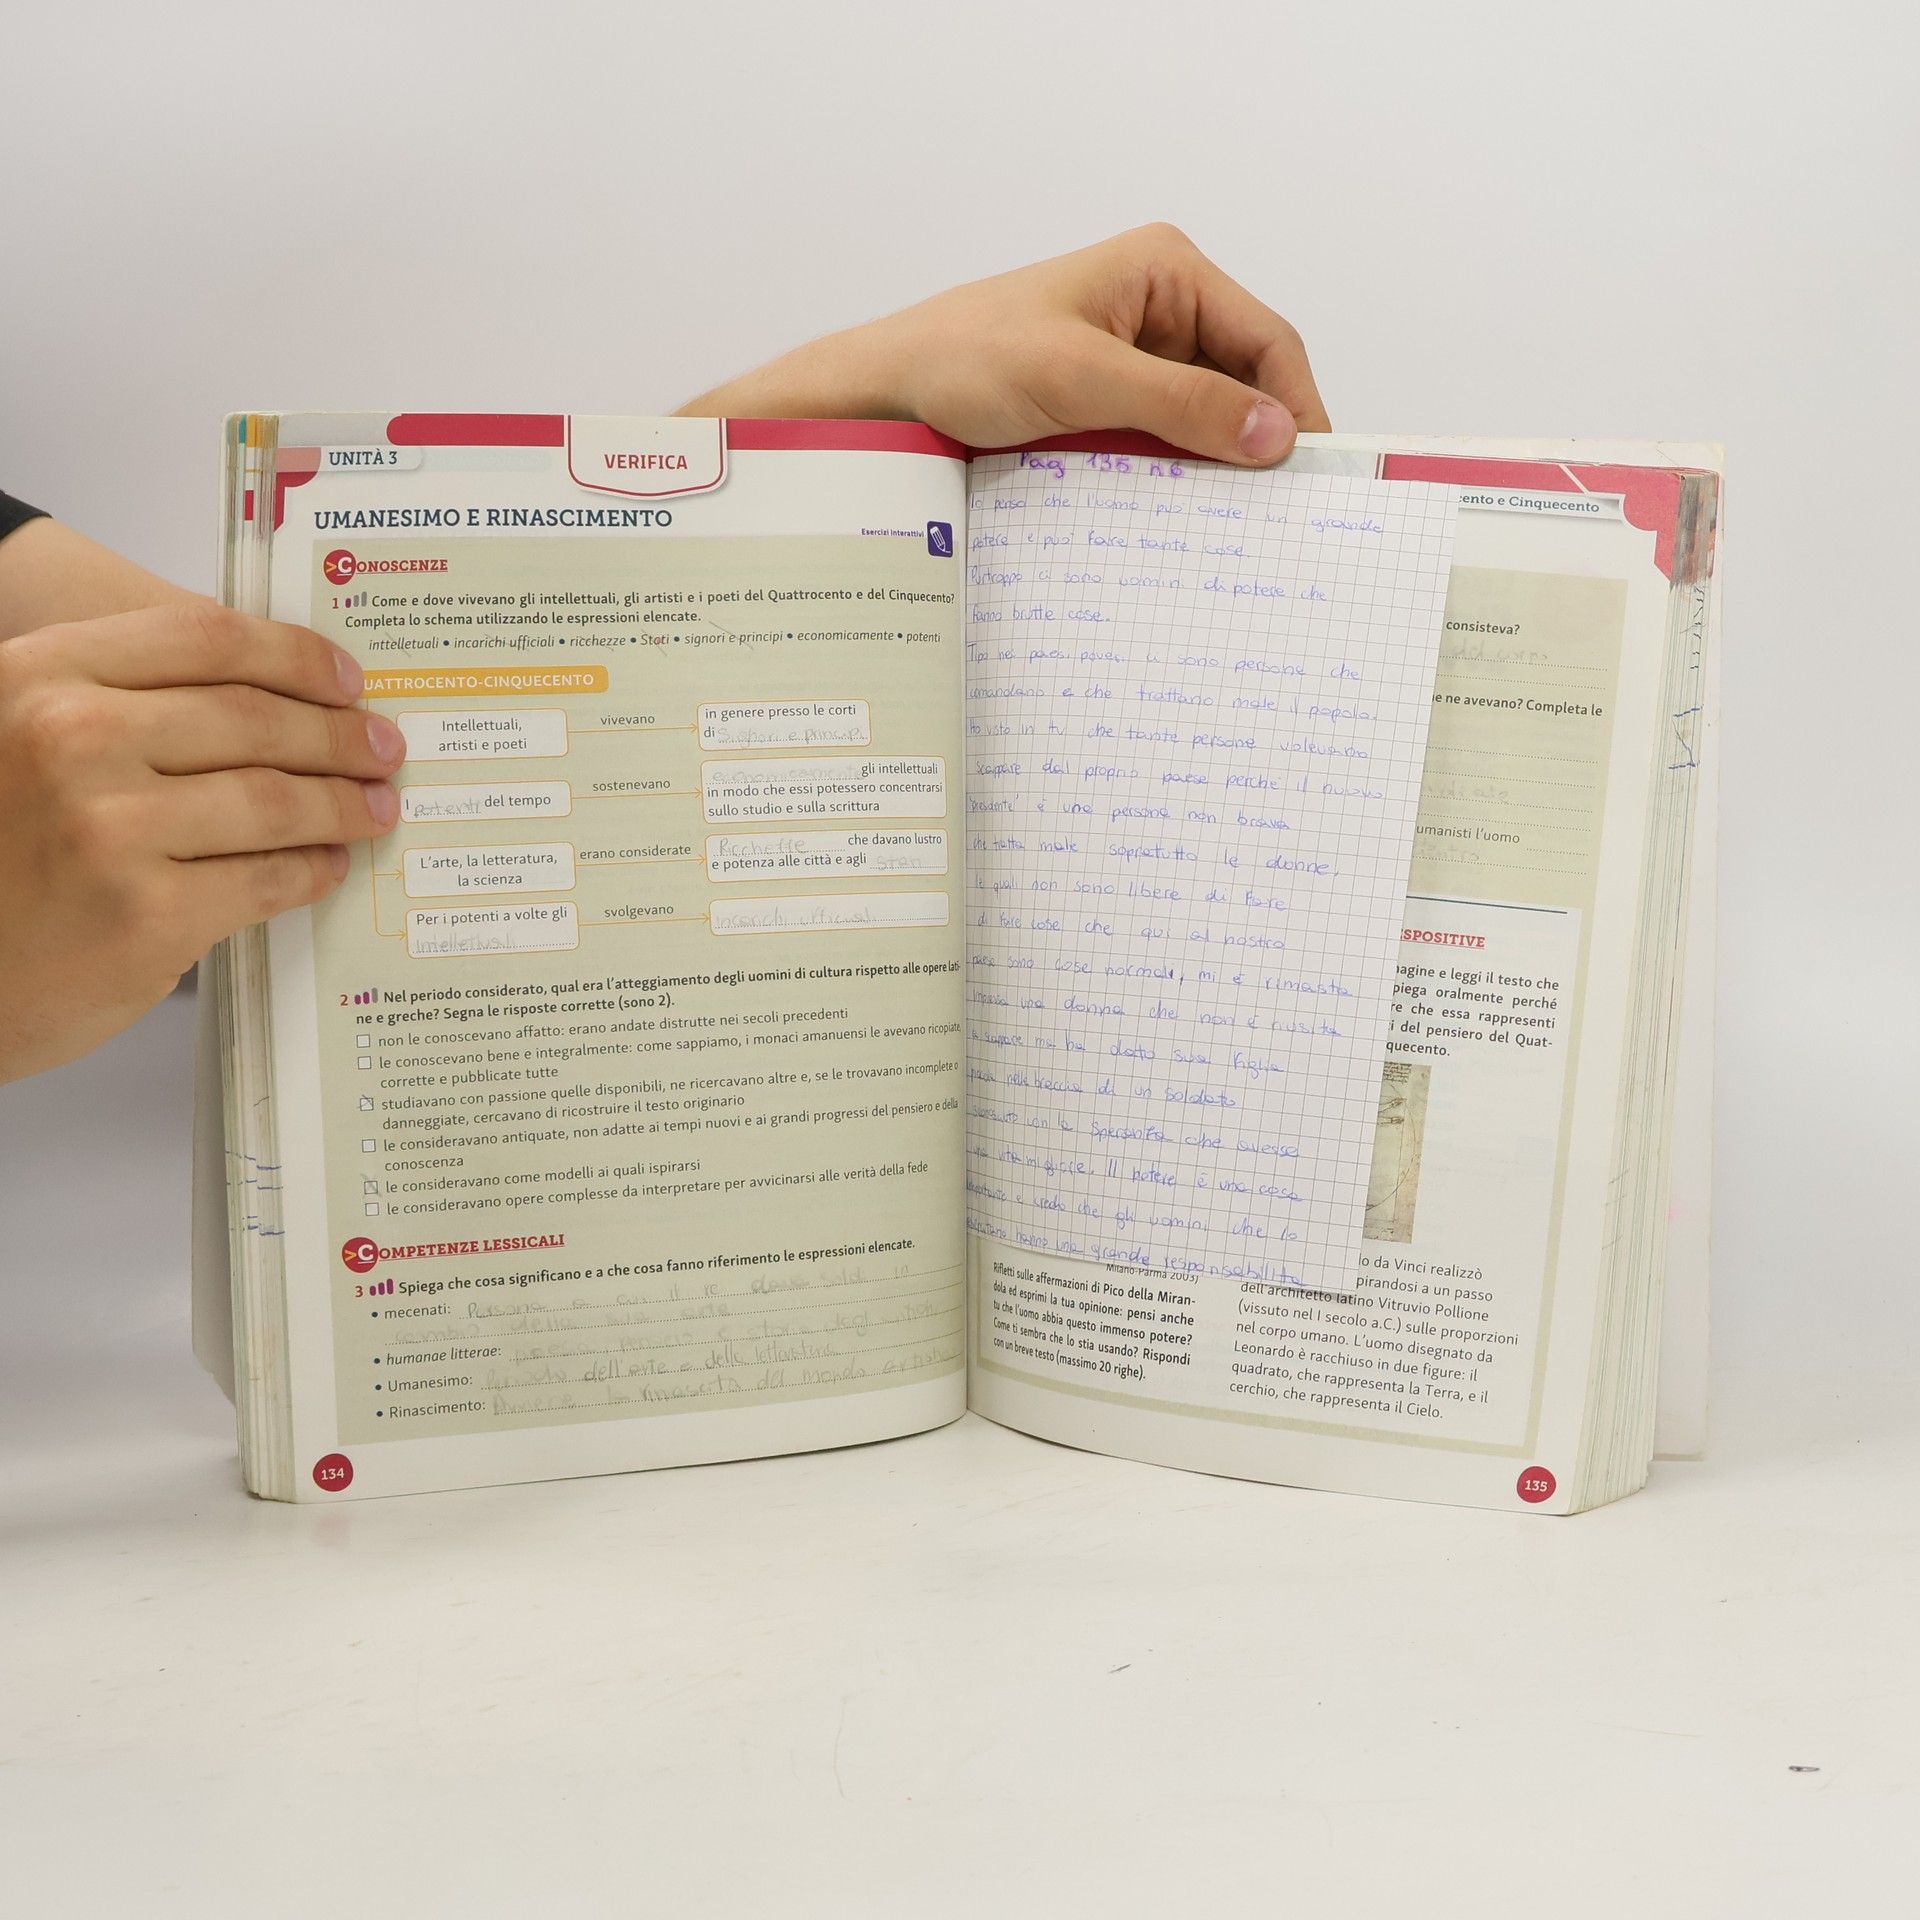 UNITÀ 3
VERIFICA
UMANESIMO E RINASCIMENTO
Esercizi Interattivi
>CONOSCENZE
1 Come e dove vivevano gli intellettuali, gli artisti e i poeti del Quattrocento e del Cinquecento?
Completa lo schema utilizzando le espressioni elencate.
inttelletuali • incarichi ufficiali • ricchezze • Stati • signori e principi • economicamente • potenti
UATTROCENTO-CINQUECENTO
Intellettuali,
artisti e poeti
vivevano
in genere presso le corti
di Signori e principi
I potenti del tempo
sostenevano
economicamente gli intellettuali
in modo che essi potessero concentrarsi
sullo studio e sulla scrittura
L'arte, la letteratura,
la scienza
erano considerate
Ricchezze che davano lustro
e potenza alle città e agli
Per i potenti a volte gli
Intellettuali
svolgevano
incarichi ufficiali
2 Nel periodo considerato, qual era l'atteggiamento degli uomini di cultura rispetto alle opere lati-
ne e greche? Segna le risposte corrette (sono 2).
non le conoscevano affatto: erano andate distrutte nei secoli precedenti
le conoscevano bene e integralmente: come sappiamo, i monaci amanuensi le avevano ricopiate,
corrette e pubblicate tutte
studiavano con passione quelle disponibili, ne ricercavano altre e, se le trovavano incomplete o
danneggiate, cercavano di ricostruire il testo originario
le consideravano antiquate, non adatte ai tempi nuovi e ai grandi progressi del pensiero e della
conoscenza
le consideravano come modelli ai quali ispirarsi
le consideravano opere complesse da interpretare per avvicinarsi alle verità della fede
>COMPETENZE LESSICALI
3 Spiega che cosa significano e a che cosa fanno riferimento le espressioni elencate.
• mecenati: Persona a cui il re dava soldi in
cambio della sua arte
• humanae litterae:
• Umanesimo: Periodo dell'arte e della letteratura
• Rinascimento: la rinascita del mondo
134
Pag 135 n 6
Io penso che l'uomo può avere un grande
potere e può fare tante cose.
Purtroppo ci sono uomini di potere che
fanno brutte cose.
Tipo nei paesi poveri ci sono persone che
comandano e che trattano male il popolo.
Ho visto in tv che tante persone volevano
scappare dal proprio paese perché il nuovo
"presidente" è una persona non brava
che tratta male sopratutto le donne,
le quali non sono libere di fare
di fare cose che qui al nostro
paese sono cose normali, mi è rimasta
impressa una donna che non è riuscita
a scappare ma ha dato sua figlia
nelle braccia di un soldato
con la speranza che avesse
una vita migliore. Il potere è una cosa
importante e credo che gli uomini che lo
hanno una grande responsabilità
cento e Cinquecento
consisteva?
del corpo
e ne avevano? Completa le
umanisti l'uomo
SPOSITIVE
agine e leggi il testo che
piega oralmente perché
re che essa rappresenti
i del pensiero del Quat-
quecento.
Milano-Parma 2003)
Rifletti sulle affermazioni di Pico della Miran-
dola ed esprimi la tua opinione: pensi anche
tu che l'uomo abbia questo immenso potere?
Come ti sembra che lo stia usando? Rispondi
con un breve testo (massimo 20 righe).
do da Vinci realizzò
pirandosi a un passo
dell'architetto latino Vitruvio Pollione
(vissuto nel I secolo a.C.) sulle proporzioni
nel corpo umano. L'uomo disegnato da
Leonardo è racchiuso in due figure: il
quadrato, che rappresenta la Terra, e il
cerchio, che rappresenta il Cielo.
135